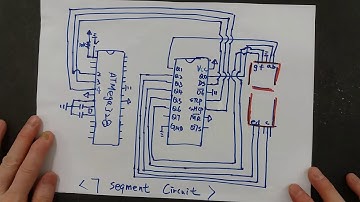 g f a b
ATMega328
Q1 Vcc
Q2 Q0
Q3 DS
Q4 OE
Q5 STP
Q6 SHCP
Q7 MR
GND Q7S
e d c
< 7 Segment Circuit >